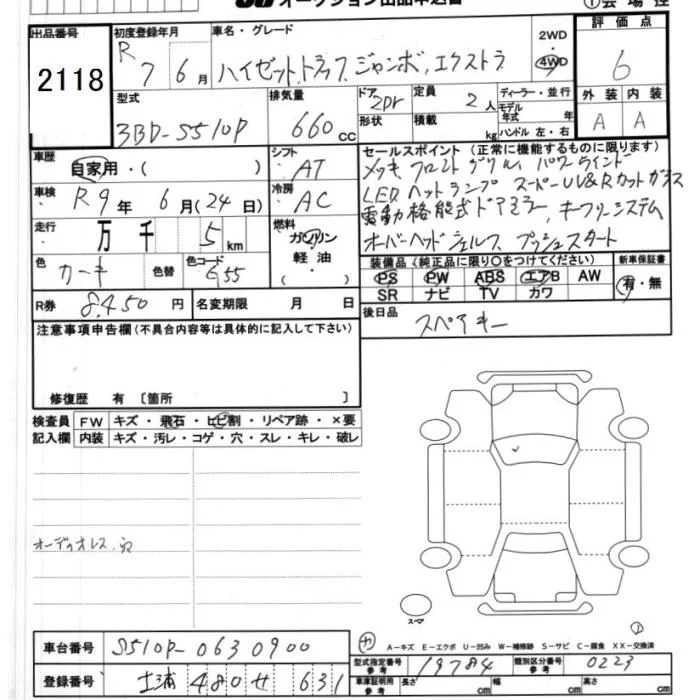 オークション出品申込書
①会場控
出品番号 初度登録年月 車名・グレード 2WD 評価点
2118 R 7 6月 ハイゼットトラック ジャンボ エクストラ 4WD 6
型式 排気量 ドア 定員 ディーラー・並行 外装 内装
3BD-S510P 660cc 2Dr 2人 モデル年式 年 A A
形状 積載 kg ハンドル 左・右
車歴 シフト セールスポイント(正常に機能するものに限ります)
自家用・( ) AT メッキフロントグリル、パワーウインド
車検 R9年 6月(24日) 冷房 AC LEDヘットランプ スーパーUV&Rカットガラス
走行 万 千 5km 燃料 ガソリン 軽油 ( ・ ) 電動格能式ドアミラー、キーフリーシステム
オーバーヘッドシェルフ、プッシュスタート
色 カーキ 色替 色コード G55 装備品(純正品に限り○をつけてください) 新車保証書
PS PW ABS エアB AW 有・無
SR ナビ TV カワ
R券 8,450円 名変期限 月 日 後日品 スペアキー
注意事項申告欄(不具合内容等は具体的に記入して下さい)
修復歴 有 〔箇所 〕
検査員 FW キズ・飛石・ヒビ割・リペア跡・×要
記入欄 内装 キズ・汚レ・コゲ・穴・スレ・キレ・破レ
オーディオレス.穴
スペア
車台番号 S510P-0630900
A-キズ E-エクボ U-凹み W-補修跡 S-サビ C-腐食 XX-交換済
型式指定番号 参考 19784 類別区分番号 参考 0223
登録番号 土浦 480 せ 631
車庫証明用 参考 長さ cm 幅 cm 高さ cm